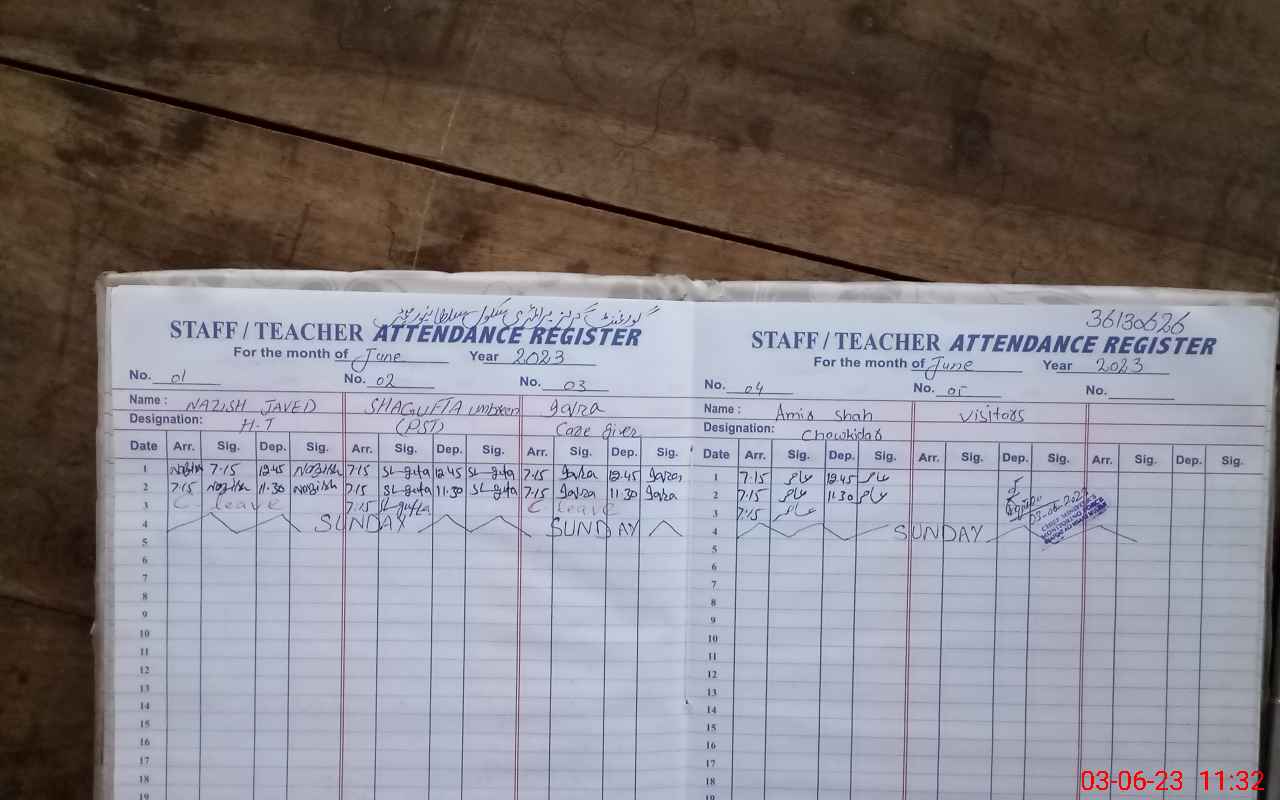 گورنمنٹ گرلز پرائمری سکول
STAFF / TEACHER ATTENDANCE REGISTER
For the month of June Year 2023
No. 01 No. 02 No. 03
Name : NAZISH JAVED SHAGUFTA umbreen Iqra
Designation: H-T (PST) Care giver
Date Arr. Sig. Dep. Sig. Arr. Sig. Dep. Sig. Arr. Sig. Dep. Sig.
1 Nazish 7.15 12.45 Nazish 7.15 SL-gufta 12.45 SL-gufta 7.15 Iqra 12.45 Iqra
2 7.15 Nazish 11.30 Nazish 7.15 SL-gufta 11.30 SL-gufta 7.15 Iqra 11.30 Iqra
3 C leave 7.15 SL-gufta C leave
4 SUNDAY SUNDAY
5
6
7
8
9
10
11
12
13
14
15
16
17
18
19
36130626
STAFF / TEACHER ATTENDANCE REGISTER
For the month of June Year 2023
No. 04 No. 05 No.
Name : Amir Shah Visitors
Designation: Chowkidar
Date Arr. Sig. Dep. Sig. Arr. Sig. Dep. Sig. Arr. Sig. Dep. Sig.
1 7.15 عامر 12.45 عامر
2 7.15 عامر 11.30 عامر
3 7.15 عامر 03-06-2023
4 SUNDAY
5
6
7
8
9
10
11
12
13
14
15
16
17
18
19
03-06-23 11:32